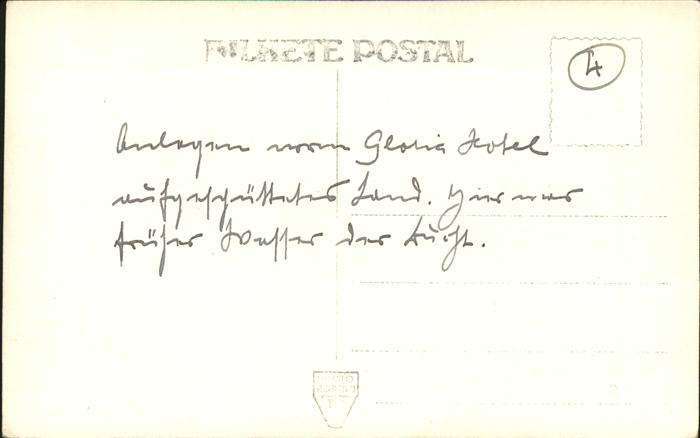 BILHETE POSTAL
4
Anlagen vorm Gloria Hotel
aufgeschüttetes Land. Hier war
früher Wasser der Bucht.